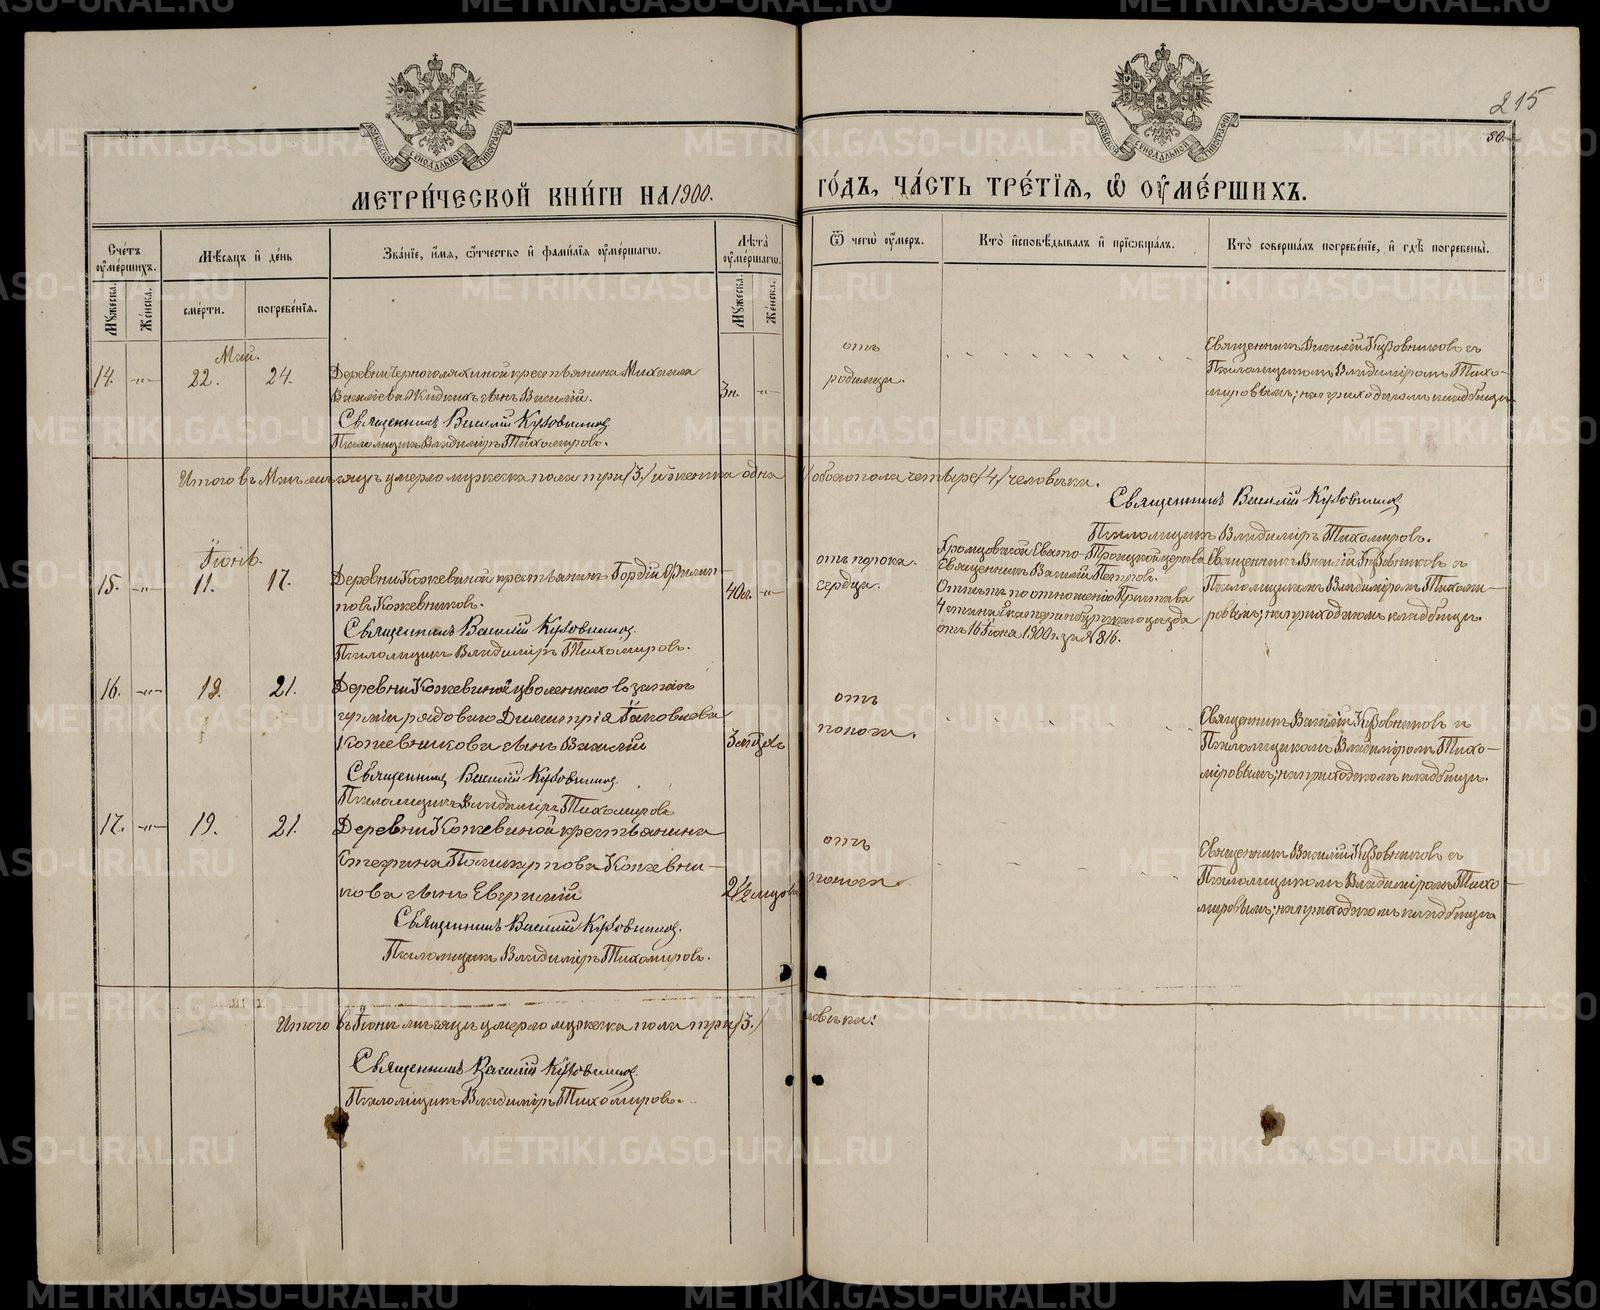 215
50.
МЕТРИ́ЧЕСКОЙ КНИ́ГИ НА 1900.
ГО́ДЪ, ЧА́СТЬ ТРЕ́ТІѦ, Ѡ҆ ОУ҆МЕ́РШИХЪ.
МОСКОВСКОЙ СѴНОДАЛЬНОЙ ТИПОГРАФІИ
МОСКОВСКОЙ СѴНОДАЛЬНОЙ ТИПОГРАФІИ
Сче́тъ оу҆ме́ршихъ.
Мѣ́сяцъ и҆ де́нь
Зва́ніе, и҆́мя, ѻ҆́тчество и҆ фами́лія оу҆ме́ршагѡ.
Лѣ́та оу҆ме́ршагѡ.
Ѿ чегѡ̀ оу҆́меръ.
Кто̀ и҆сповѣ́дывалъ и҆ прїѡбща́лъ.
Кто̀ соверша́лъ погребе́ніе, и҆ гдѣ̀ погребены̀.
Му́жеска.
Же́нска.
сме́рти.
погребе́нія.
Му́жеска.
Же́нска.
Май.
14. -„- 22. 24.
Деревни Черноголяхиной крестьянина Михаила
Василіева сынъ Василій.
Священникъ Василій Кузовниковъ
Псаломщикъ Владиміръ Тихомировъ.
3н. -„-
отъ
родимца.
Священникъ Василій Кузовниковъ съ
Псаломщикомъ Владиміромъ Тихо-
мировымъ; на приходскомъ кладбищѣ
Итого въ Маѣ мѣсяцѣ умерло мужеска пола три /3/ и женска одна
обоего пола четыре /4/ человѣка.
Священникъ Василій Кузовниковъ
Псаломщикъ Владиміръ Тихомировъ.
Іюнь.
15. -„- 11. 17.
Деревни Кожевиной крестьянинъ Гордій Филип-
повъ Кожевниковъ.
Священникъ Василій Кузовниковъ.
Псаломщикъ Владиміръ Тихомировъ.
40л. -„-
отъ порока
сердца.
Свято-Троицкой церкви
Священникъ Василій Петровъ.
Отпѣтъ по отношенію Пристава
4 стана Екатеринбургскаго уѣзда
отъ 16 Іюня 1900 г. за № 816.
Священникъ Василій Кузовниковъ съ
Псаломщикомъ Владиміромъ Тихоми-
ровымъ; на приходскомъ кладбищѣ.
16. -„- 19. 21.
Деревни Кожевиной уволеннаго въ запасъ
арміи рядоваго Димитрія Іаковлева
Кожевникова сынъ Василій
Священникъ Василій Кузовниковъ.
Псаломщикъ Владиміръ Тихомировъ
3 мѣсяцъ
отъ
поноса.
Священникъ Василій Кузовниковъ съ
Псаломщикомъ Владиміромъ Тихо-
міровымъ; на приходскомъ кладбищѣ.
17. -„- 19. 21.
Деревни Кожевиной крестьянина
Стефана Поликарпова Кожевни-
кова сынъ Евгеній
Священникъ Василій Кузовниковъ.
Псаломщикъ Владиміръ Тихомировъ.
2½ мѣсяцовъ
отъ
поноса
Священникъ Василій Кузовниковъ съ
Псаломщикомъ Владиміромъ Тихо-
мировымъ; на приходскомъ кладбищѣ
Итого въ Іюнѣ мѣсяцѣ умерло мужеска пола три /3./
ловѣка:
Священникъ Василій Кузовниковъ.
Псаломщикъ Владиміръ Тихомировъ.
METRIKI.GASO-URAL.RU